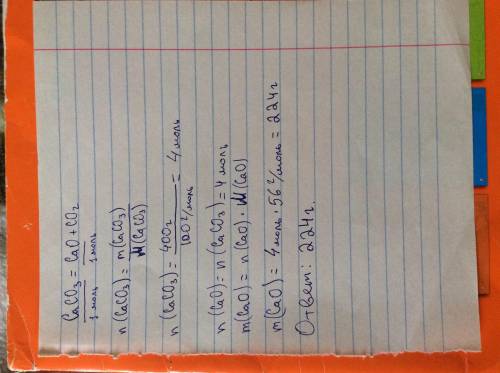 CaCO₃ = CaO + CO₂
1 моль 1 моль
n (CaCO₃) = m(CaCO₃) / M(CaCO₃)
n (CaCO₃) = 400г / 100 г/моль = 4 моль
n (CaO) = n (CaCO₃) = 4 моль
m(CaO) = n (CaO) · M(CaO)
m(CaO) = 4 моль · 56 г/моль = 224 г
Ответ: 224 г.